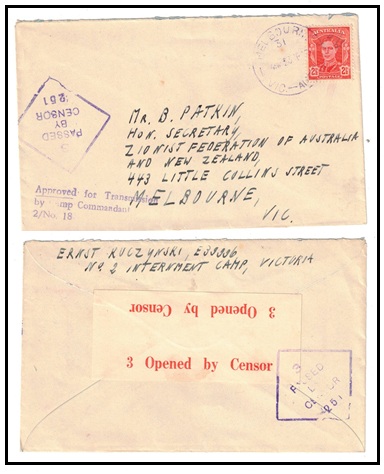 MELBOURNE
31
VIC-AUST
AUSTRALIA
2½D
3
PASSED
BY
CENSOR
251
MR. B. PATKIN,
HON. SECRETARY,
ZIONIST FEDERATION OF AUSTRALIA
AND NEW ZEALAND,
443 LITTLE COLLINS STREET
MELBOURNE,
VIC.
Approved for Transmission
by Camp Commandant
2/No. 18
ERNST KUCZYNSKI, E35336
No 2 INTERNMENT CAMP, VICTORIA
3 Opened by Censor
3 Opened by Censor
3